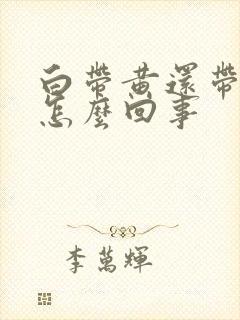 白帶黃還帶
怎麼回事
李萬輝